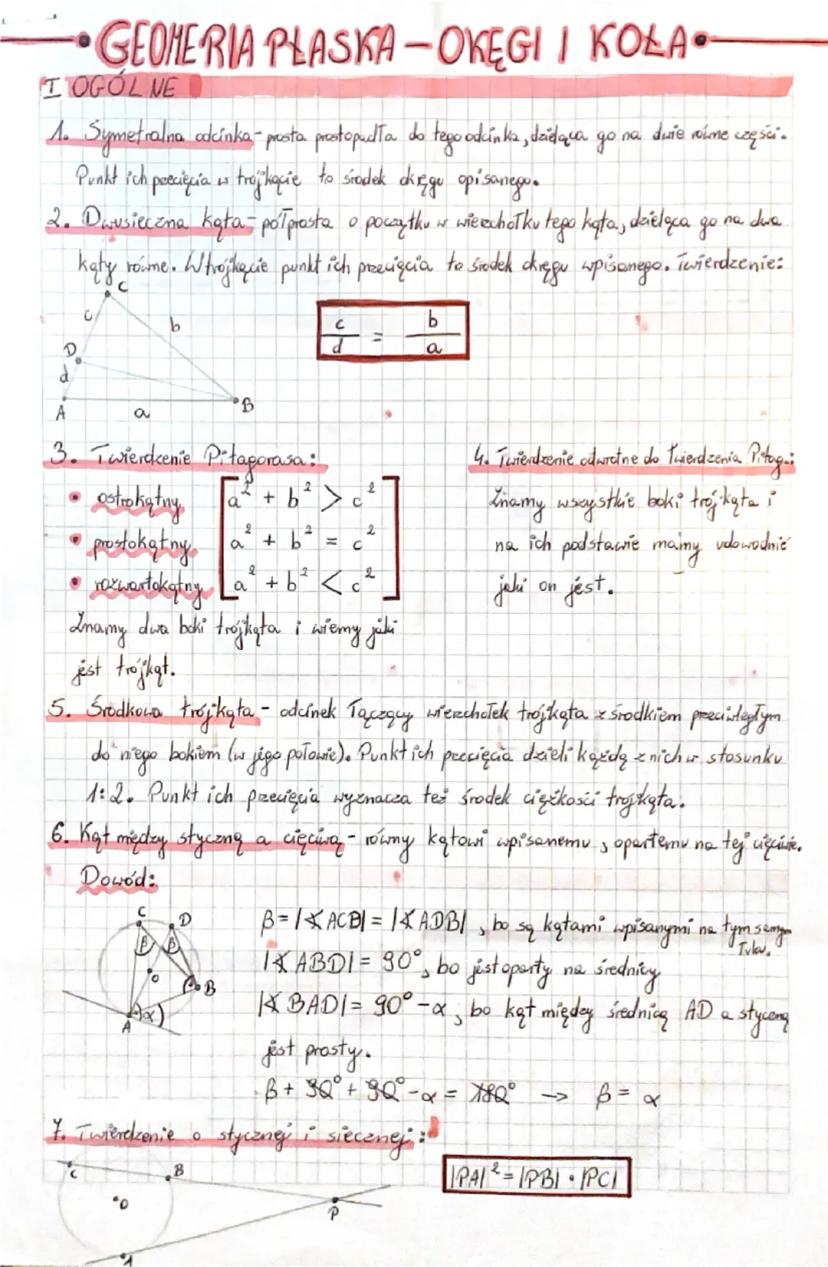 GEOMERIA PŁASKA - OKĘGI I KOŁA
I OGÓLNE
1. Symetralna odcinka - prosta prostopadła do tego odcinka, dzieląca go na dwie równe części.
Punkt ich przecięcia w trójkącie to środek okręgu opisanego.
2. Dwusieczna kąta - półprosta o początku w wierzchołku tego kąta, dzieląca go na dwa
kąty równe. W trójkącie punkt ich przecięcia to środek okręgu wpisanego. Twierdzenie:
C
c
b
D
d
A
a
B
c/d = b/a
3. Twierdzenie Pitagorasa:
• ostrokątny a² + b² > c²
• prostokątny a² + b² = c²
• rozwartokątny a² + b² < c²
Znamy dwa boki trójkąta i wiemy jaki
jest trójkąt.
4. Twierdzenie odwrotne do Twierdzenia Pitag.:
Znamy wszystkie boki trójkąta i
na ich podstawie mamy udowodnić
jaki on jest.
5. Środkowa trójkąta - odcinek łączący wierzchołek trójkąta z środkiem przeciwległym
do niego bokiem (w jego połowie). Punkt ich przecięcia dzieli każdą z nich w stosunku
1:2. Punkt ich przecięcia wyznacza też środek ciężkości trójkąta.
6. Kąt między styczną a cięciwą - równy kątowi wpisanemu, opartemu na tej cięciwie.
Dowód:
C D
β β
O
B
A α
β = |∢ACB| = |∢ADB|, bo są kątami wpisanymi na tym samym
łuku.
|∢ABD| = 90°, bo jest oparty na średnicy
|∢BAD| = 90° - α, bo kąt między średnicą AD a styczną
jest prosty.
β + 90° + 90° - α = 180° → β = α
7. Twierdzenie o stycznej i siecznej:
C
B
O
P
A
|PA|² = |PB| · |PC|